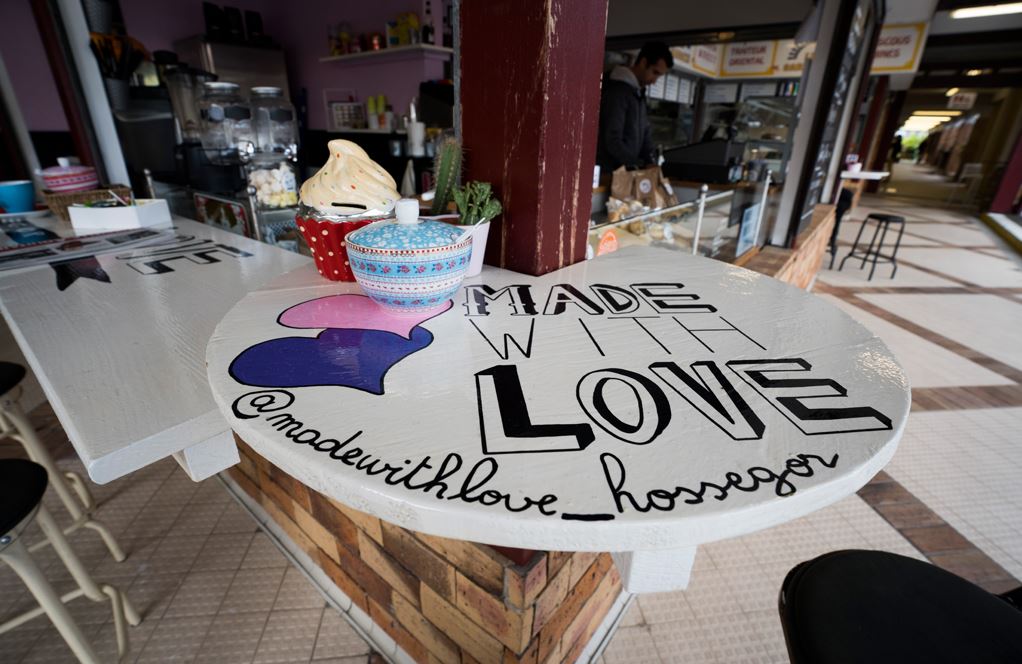 TRAITEUR
ORIENTAL
MADE
WITH
LOVE
@madewithlove_hossegor